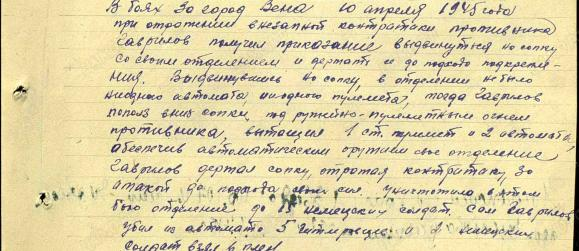 В боях за город Вена 10 апреля 1945 года
при отражении внезапной контратаки противника
Гаврилов получил приказание выдвинуться на сопку
со своим отделением и держать её до подхода подкрепле-
ния. Выдвинувшись на сопку, в отделении не было
ниодного автомата, ниодного пулемета, тогда Гаврилов
пополз вниз сопки, под ружейно-пулеметным огнем
противника, вытащил 1 ст. пулемет и 2 автомата
обеспечив автоматическим оружием свое отделение
Гаврилов держал сопку, отражая контратаку за
атакой до подхода своих сил, уничтожило в этом
бою отделение до 15 немецких солдат. Сам Гаврилов
убил из автомата 5 гитлеровцев и 1 немецких
солдат взял в плен